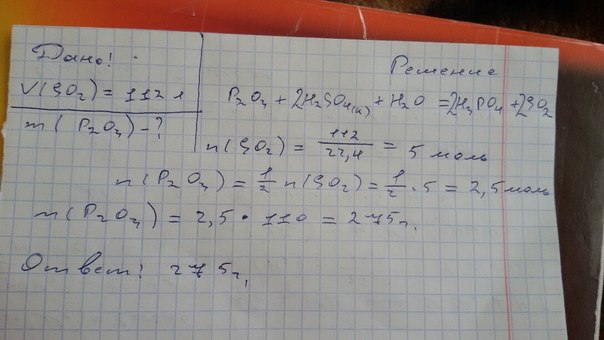 Дано:
V(SO₂) = 112 л
m(P₂O₃) - ?
Решение
P₂O₃ + 2H₂SO₄(к) + H₂O = 2H₃PO₄ + 2SO₂
n(SO₂) = 112/22,4 = 5 моль
n(P₂O₃) = 1/2 n(SO₂) = 1/2 · 5 = 2,5 моль
m(P₂O₃) = 2,5 · 110 = 275 г.
Ответ: 275 г.